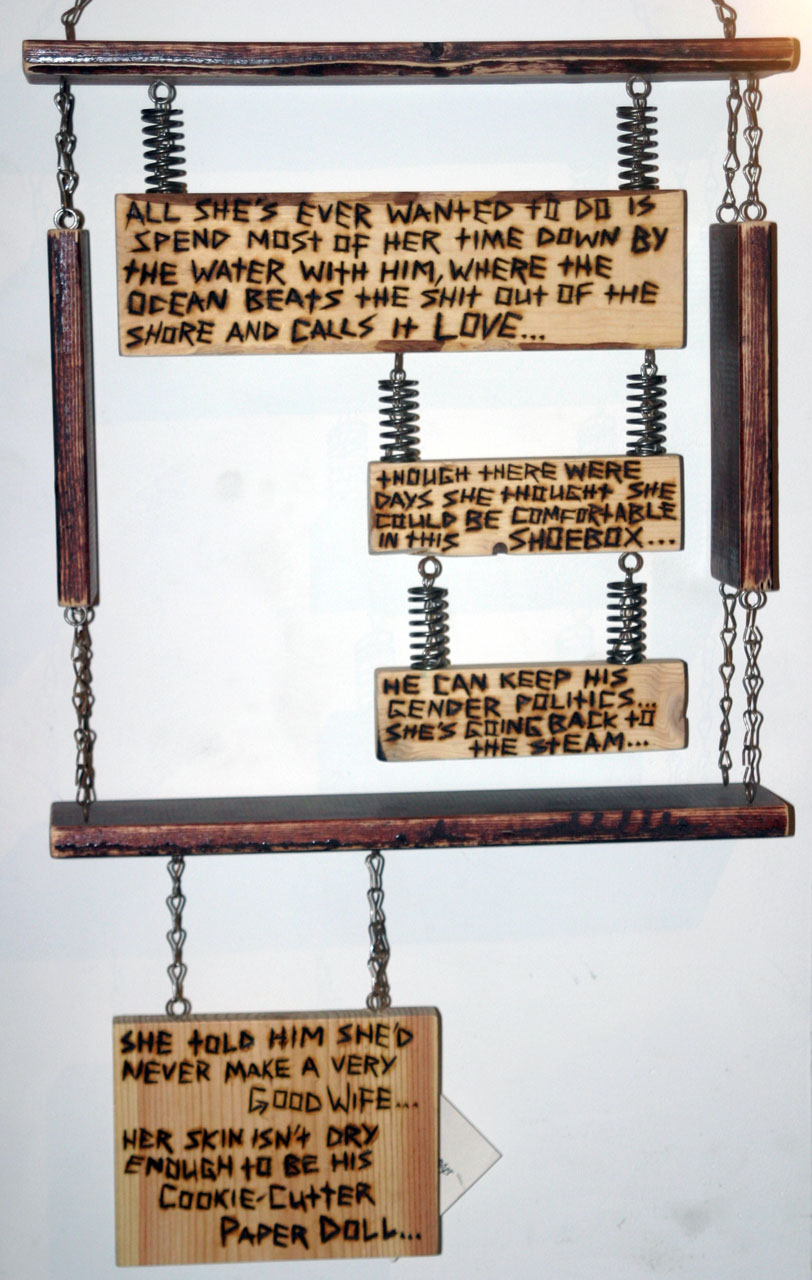 ALL SHE'S EVER WANTED TO DO IS
SPEND MOST OF HER TIME DOWN BY
THE WATER WITH HIM, WHERE THE
OCEAN BEATS THE SHIT OUT OF THE
SHORE AND CALLS IT LOVE...
THOUGH THERE WERE
DAYS SHE THOUGHT SHE
COULD BE COMFORTABLE
IN THIS SHOEBOX...
HE CAN KEEP HIS
GENDER POLITICS...
SHE'S GOING BACK TO
THE STEAM...
SHE TOLD HIM SHE'D
NEVER MAKE A VERY
GOOD WIFE...
HER SKIN ISN'T DRY
ENOUGH TO BE HIS
COOKIE-CUTTER
PAPER DOLL...